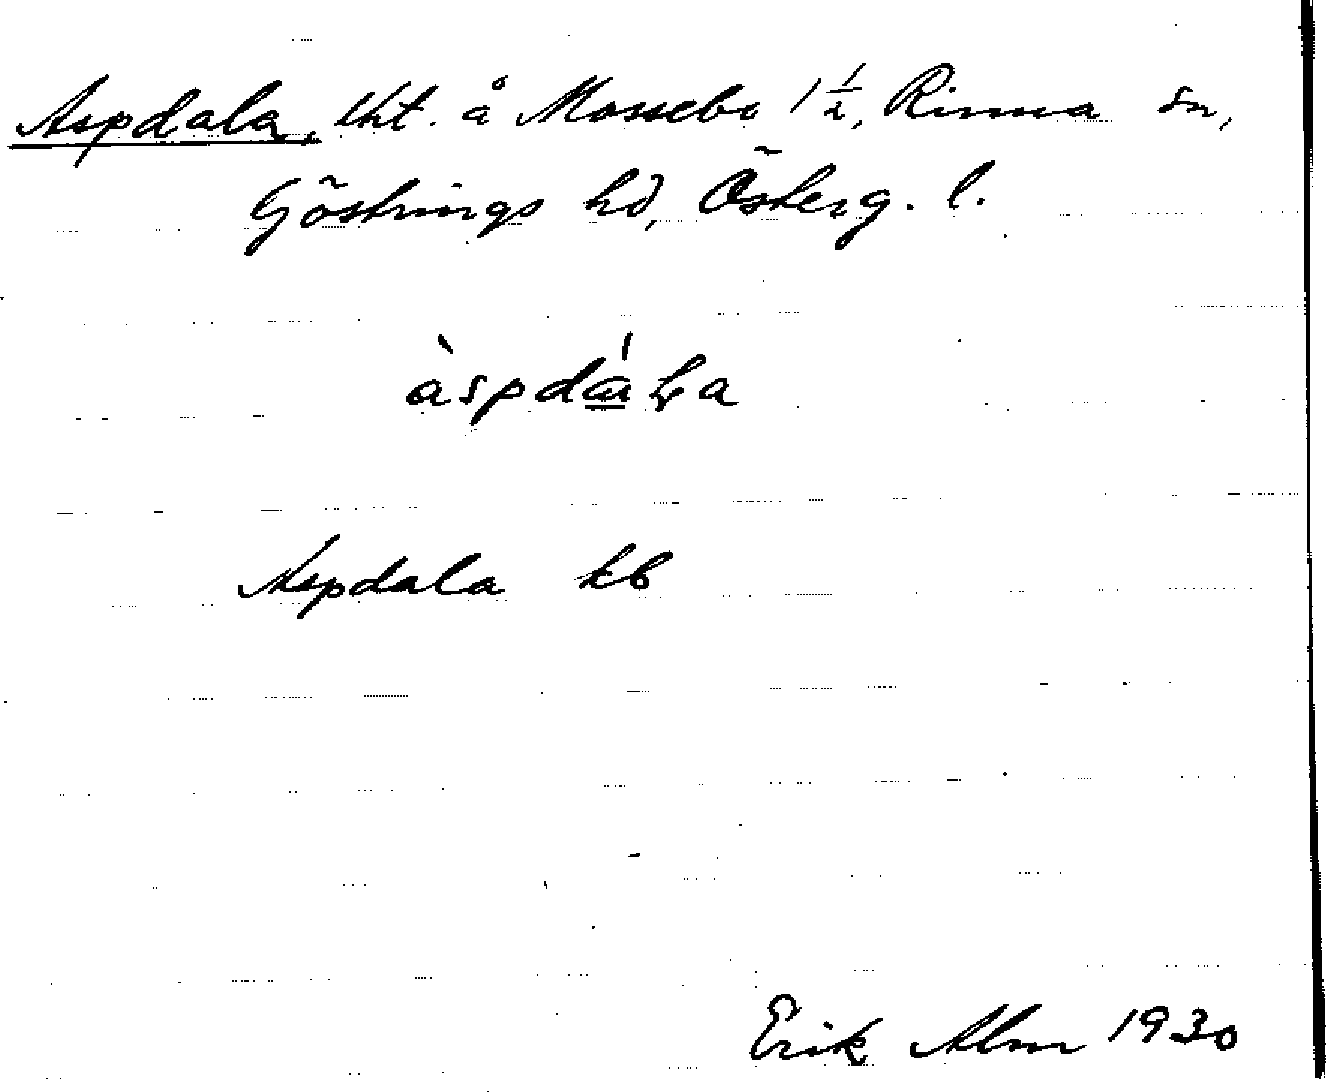 Aspdala, lht. å Mossebo 1 1/2, Rinna sn,
Göstrings hd, Österg. l.
àspdáLa
Aspdala kb
Erik Alm 1930